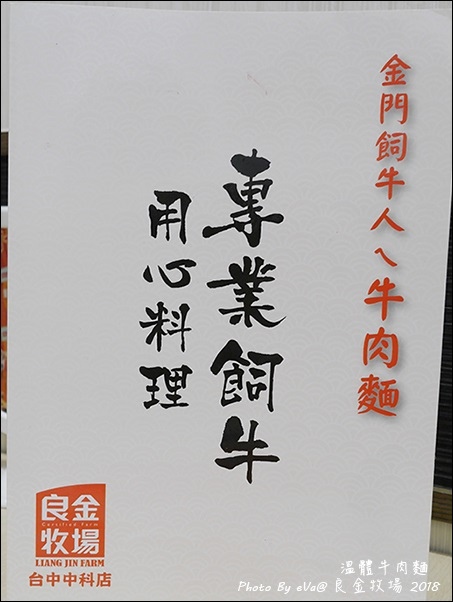 金門飼牛人~牛肉麵
專業飼牛
用心料理
良金
Certified Farm
牧場
LIANG JIN FARM
台中中科店
溫體牛肉麵
Photo By eVa@良金牧場 2018